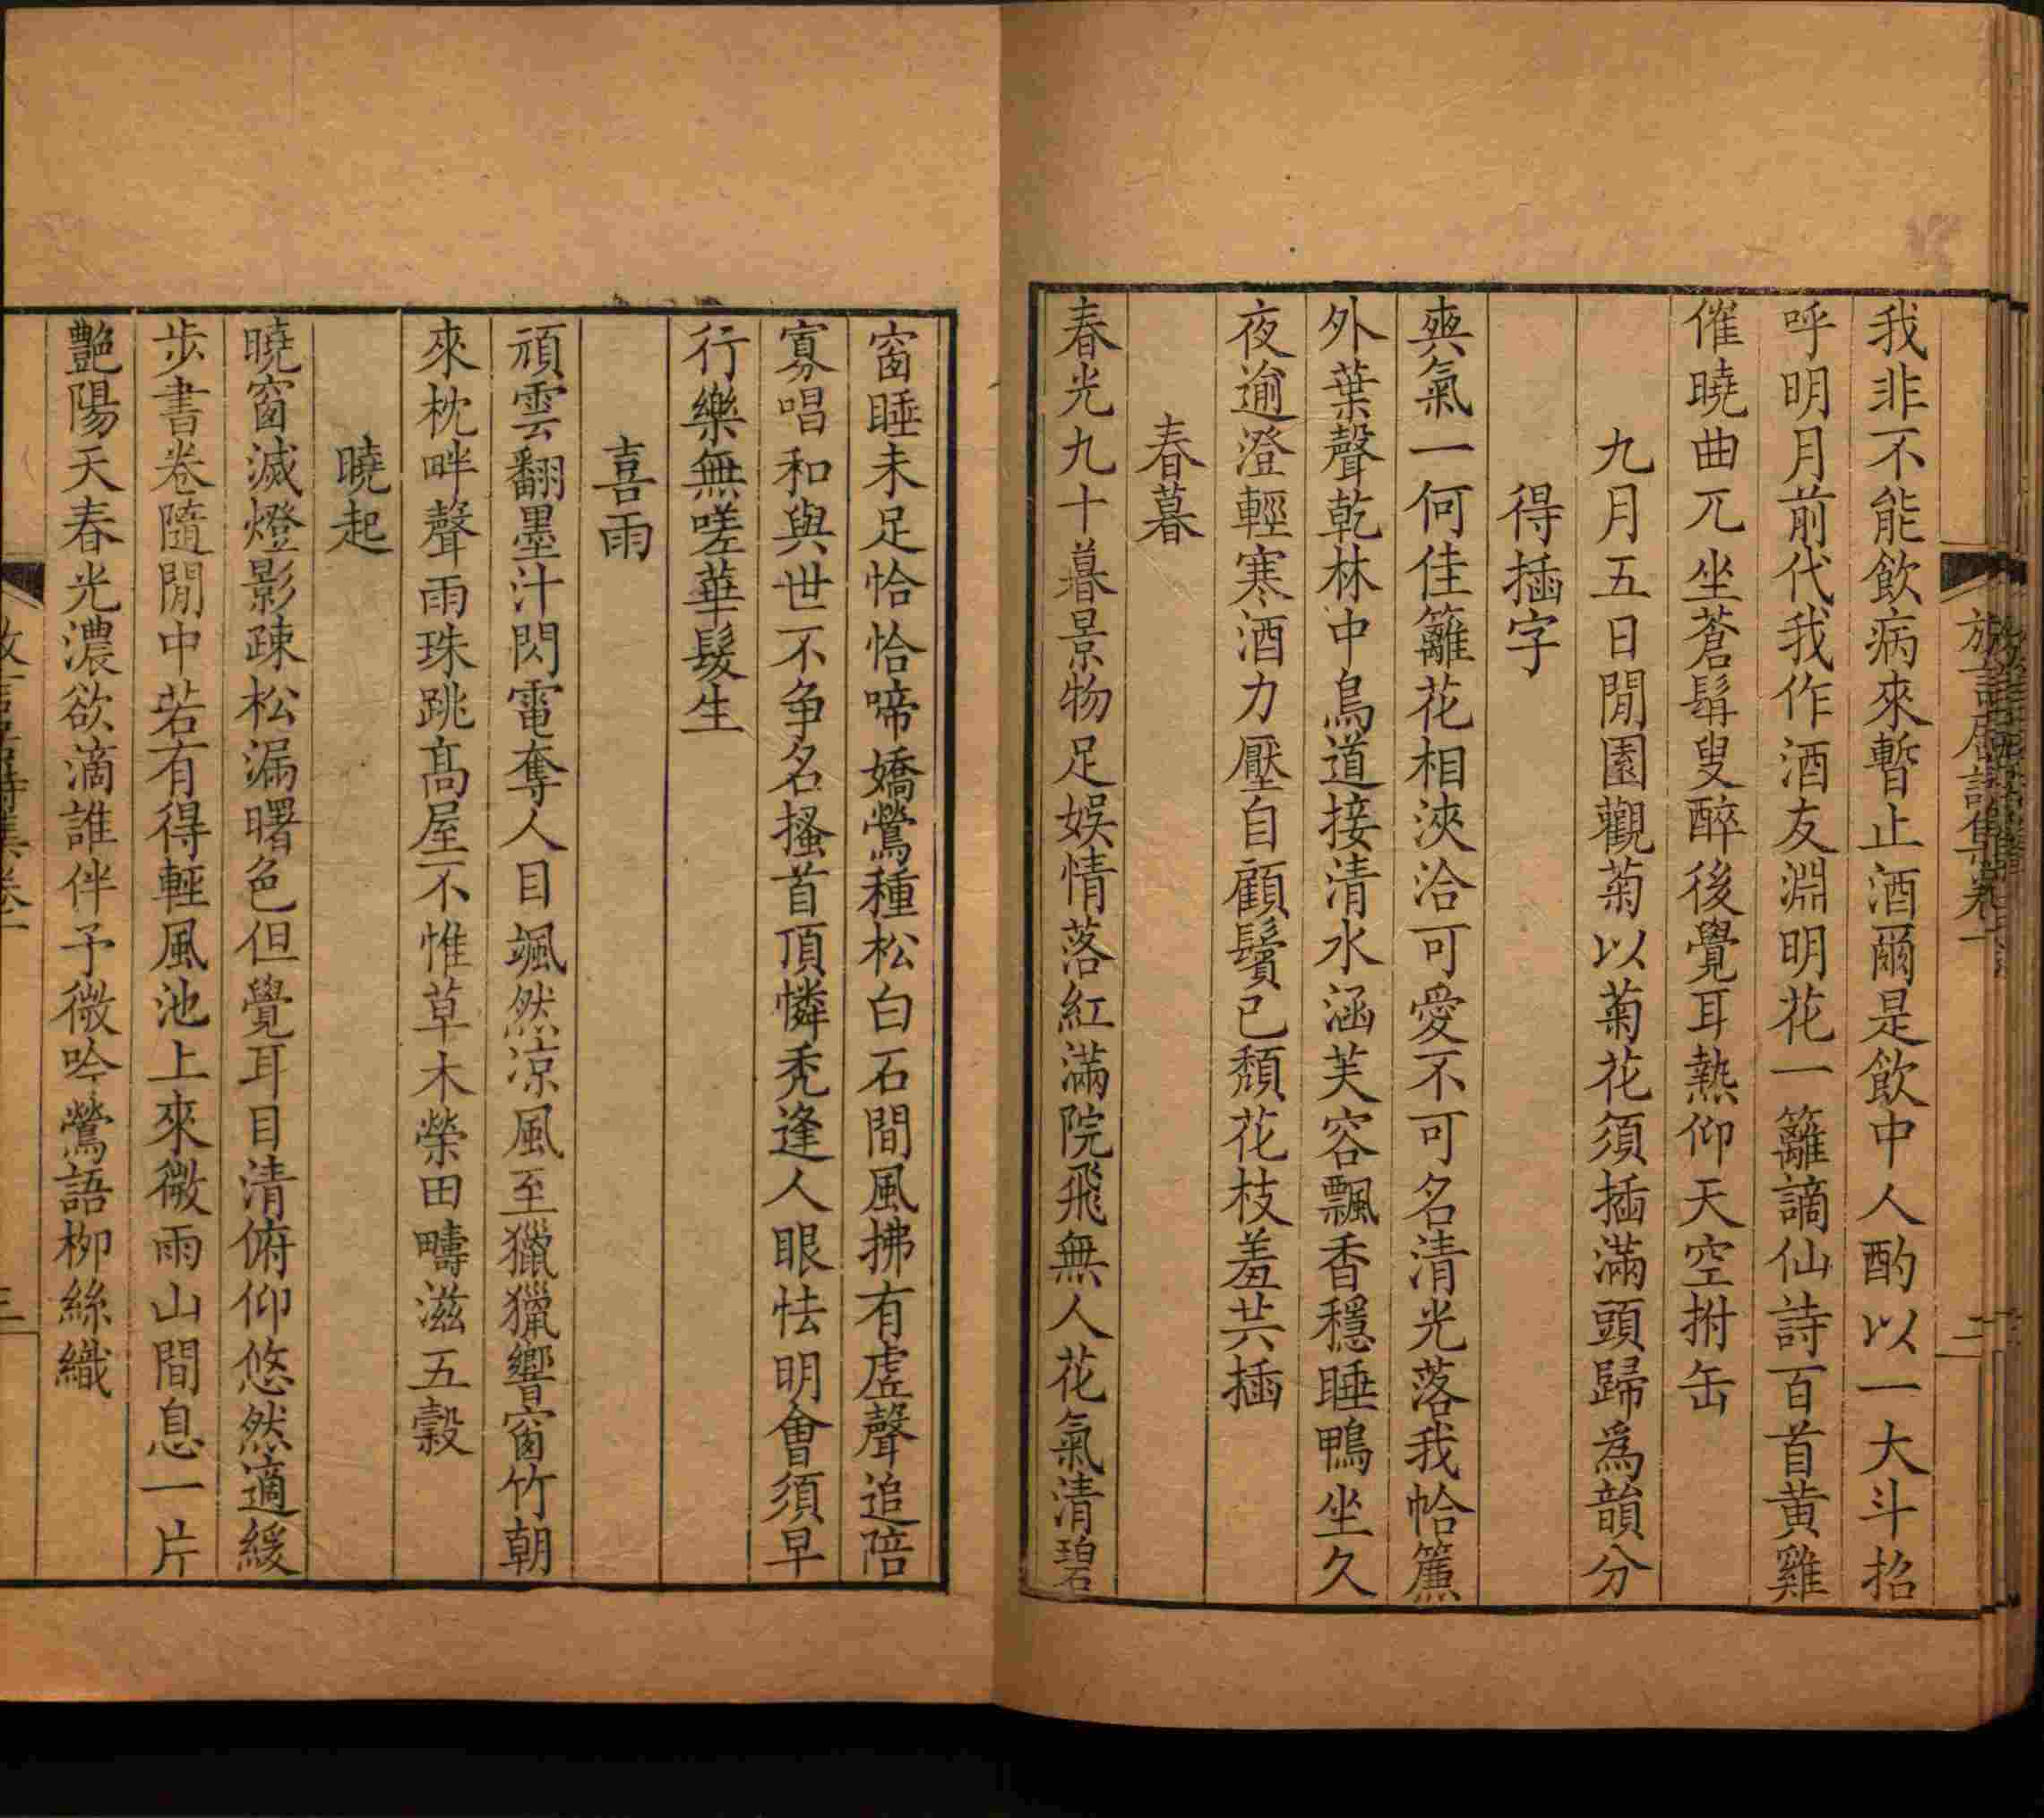 我非不能飲病來暫止酒爾是飲中人酌以一大斗招
呼明月前代我作酒友淵明花一籬謫仙詩百首黄雞
催曉曲兀坐蒼髯叟醉後覺耳熱仰天空拊缶
九月五日閒園觀菊以菊花須插滿頭歸爲韻分
得插字
爽氣一何佳籬花相浹洽可愛不可名清光落我帢簾
外葉聲乾林中鳥道接清水涵芙容飄香穩睡鴨坐久
夜逾澄輕寒酒力壓自顧鬢已頹花枝羞共插
春暮
春光九十暮景物足娛情落紅滿院飛無人花氣清碧
窗睡未足恰恰啼嬌鶯種松白石間風拂有虛聲追陪
寡唱和與世不争名搔首頂憐禿逢人眼怯明會須早
行樂無嗟華髮生
喜雨
頑雲翻墨汁閃電奪人目颯然涼風至獵獵響窗竹朝
來枕畔聲雨珠跳高屋不惟草木榮田疇滋五穀
曉起
曉窗滅燈影疎松漏曙色但覺耳目清俯仰悠然適緩
步書卷隨閒中若有得輕風池上來微雨山間息一片
艷陽天春光濃欲滴誰伴予微吟鶯語柳絲織